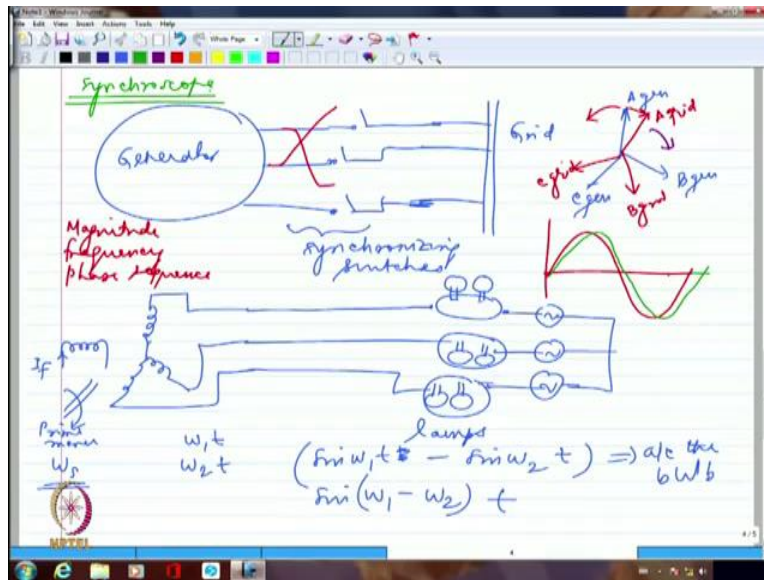 Note3 - Windows Journal
File Edit View Insert Actions Tools Help
Whole Page
Synchroscope
Generator
Grid
A gen
A grid
B gen
B grid
C gen
C grid
Magnitude
frequency
phase sequence
synchronizing
switches
If
Prime
mover
ωs
lamps
ω1t
ω2t
(sin ω1t - sin ω2t) ⇒ a/c the
bulb
sin(ω1 - ω2) t
NPTEL
4/5
4